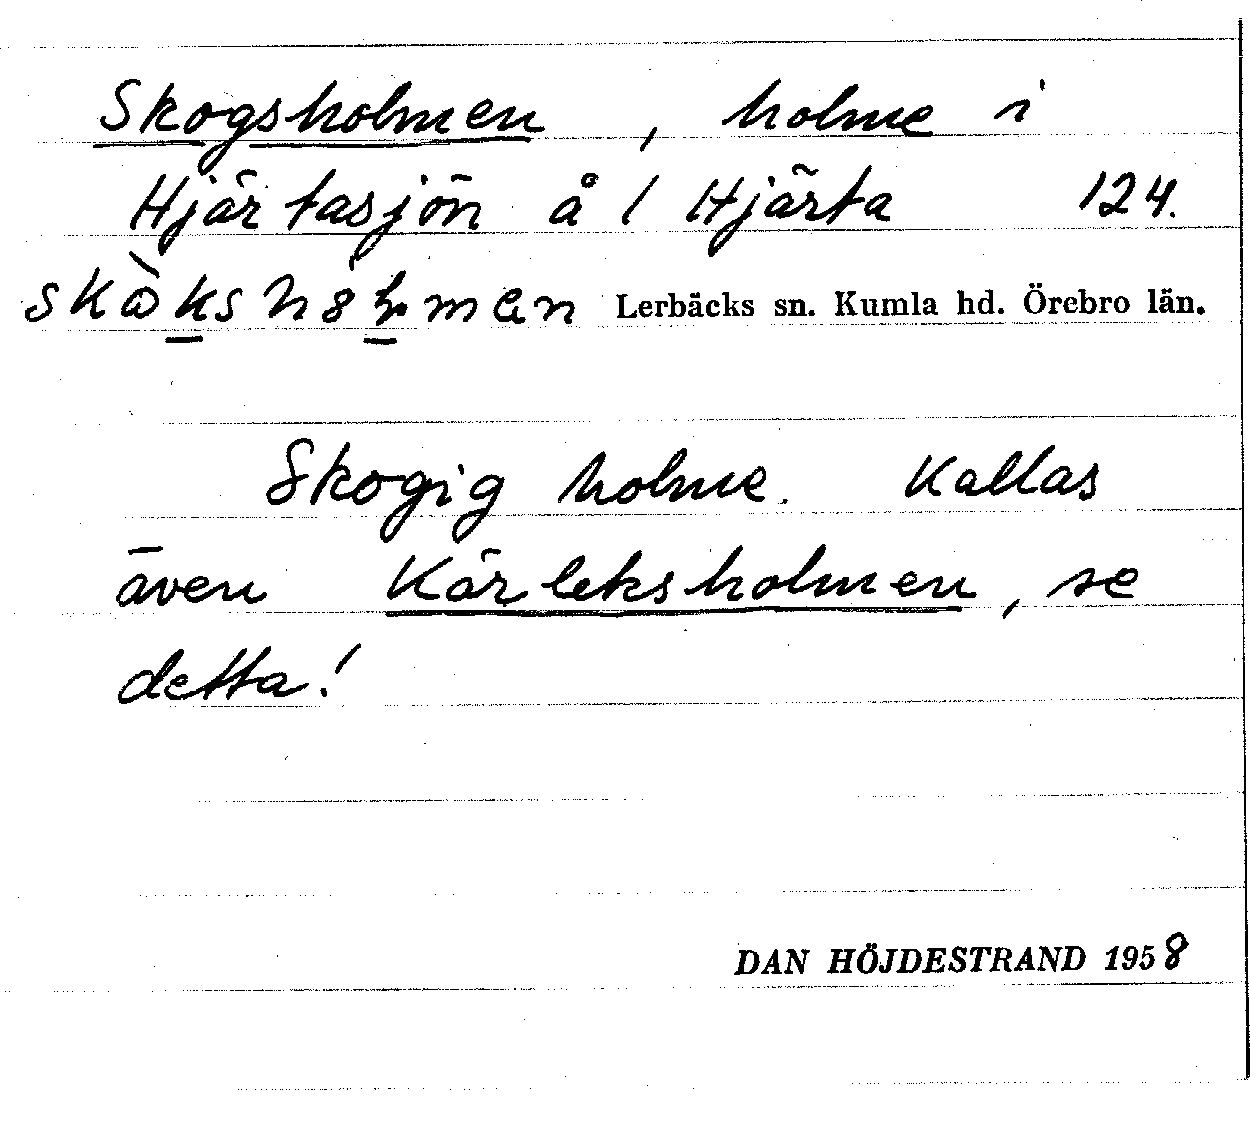 Skogsholmen, holme i
Hjärtasjön å 1 Hjärta 124.
Lerbäcks sn. Kumla hd. Örebro län.
Skogig holme. Kallas
även Kärleksholmen, se
detta!
DAN HÖJDESTRAND 1958